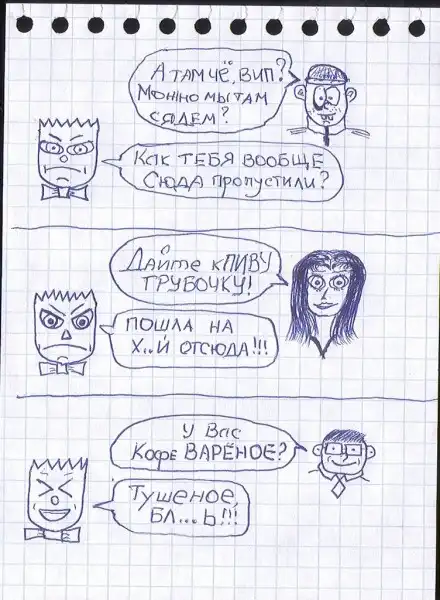 А ТАМ ЧЁ, ВИП?
МОЖНО МЫ ТАМ
СЯДЕМ?
КАК ТЕБЯ ВООБЩЕ
СЮДА ПРОПУСТИЛИ?
ДАЙТЕ К ПИВУ
ТРУБОЧКУ!
ПОШЛА НА
Х..Й ОТСЮДА!!!
У ВАС
КОФЕ ВАРЁНОЕ?
ТУШЕНОЕ,
БЛ...Ь!!!